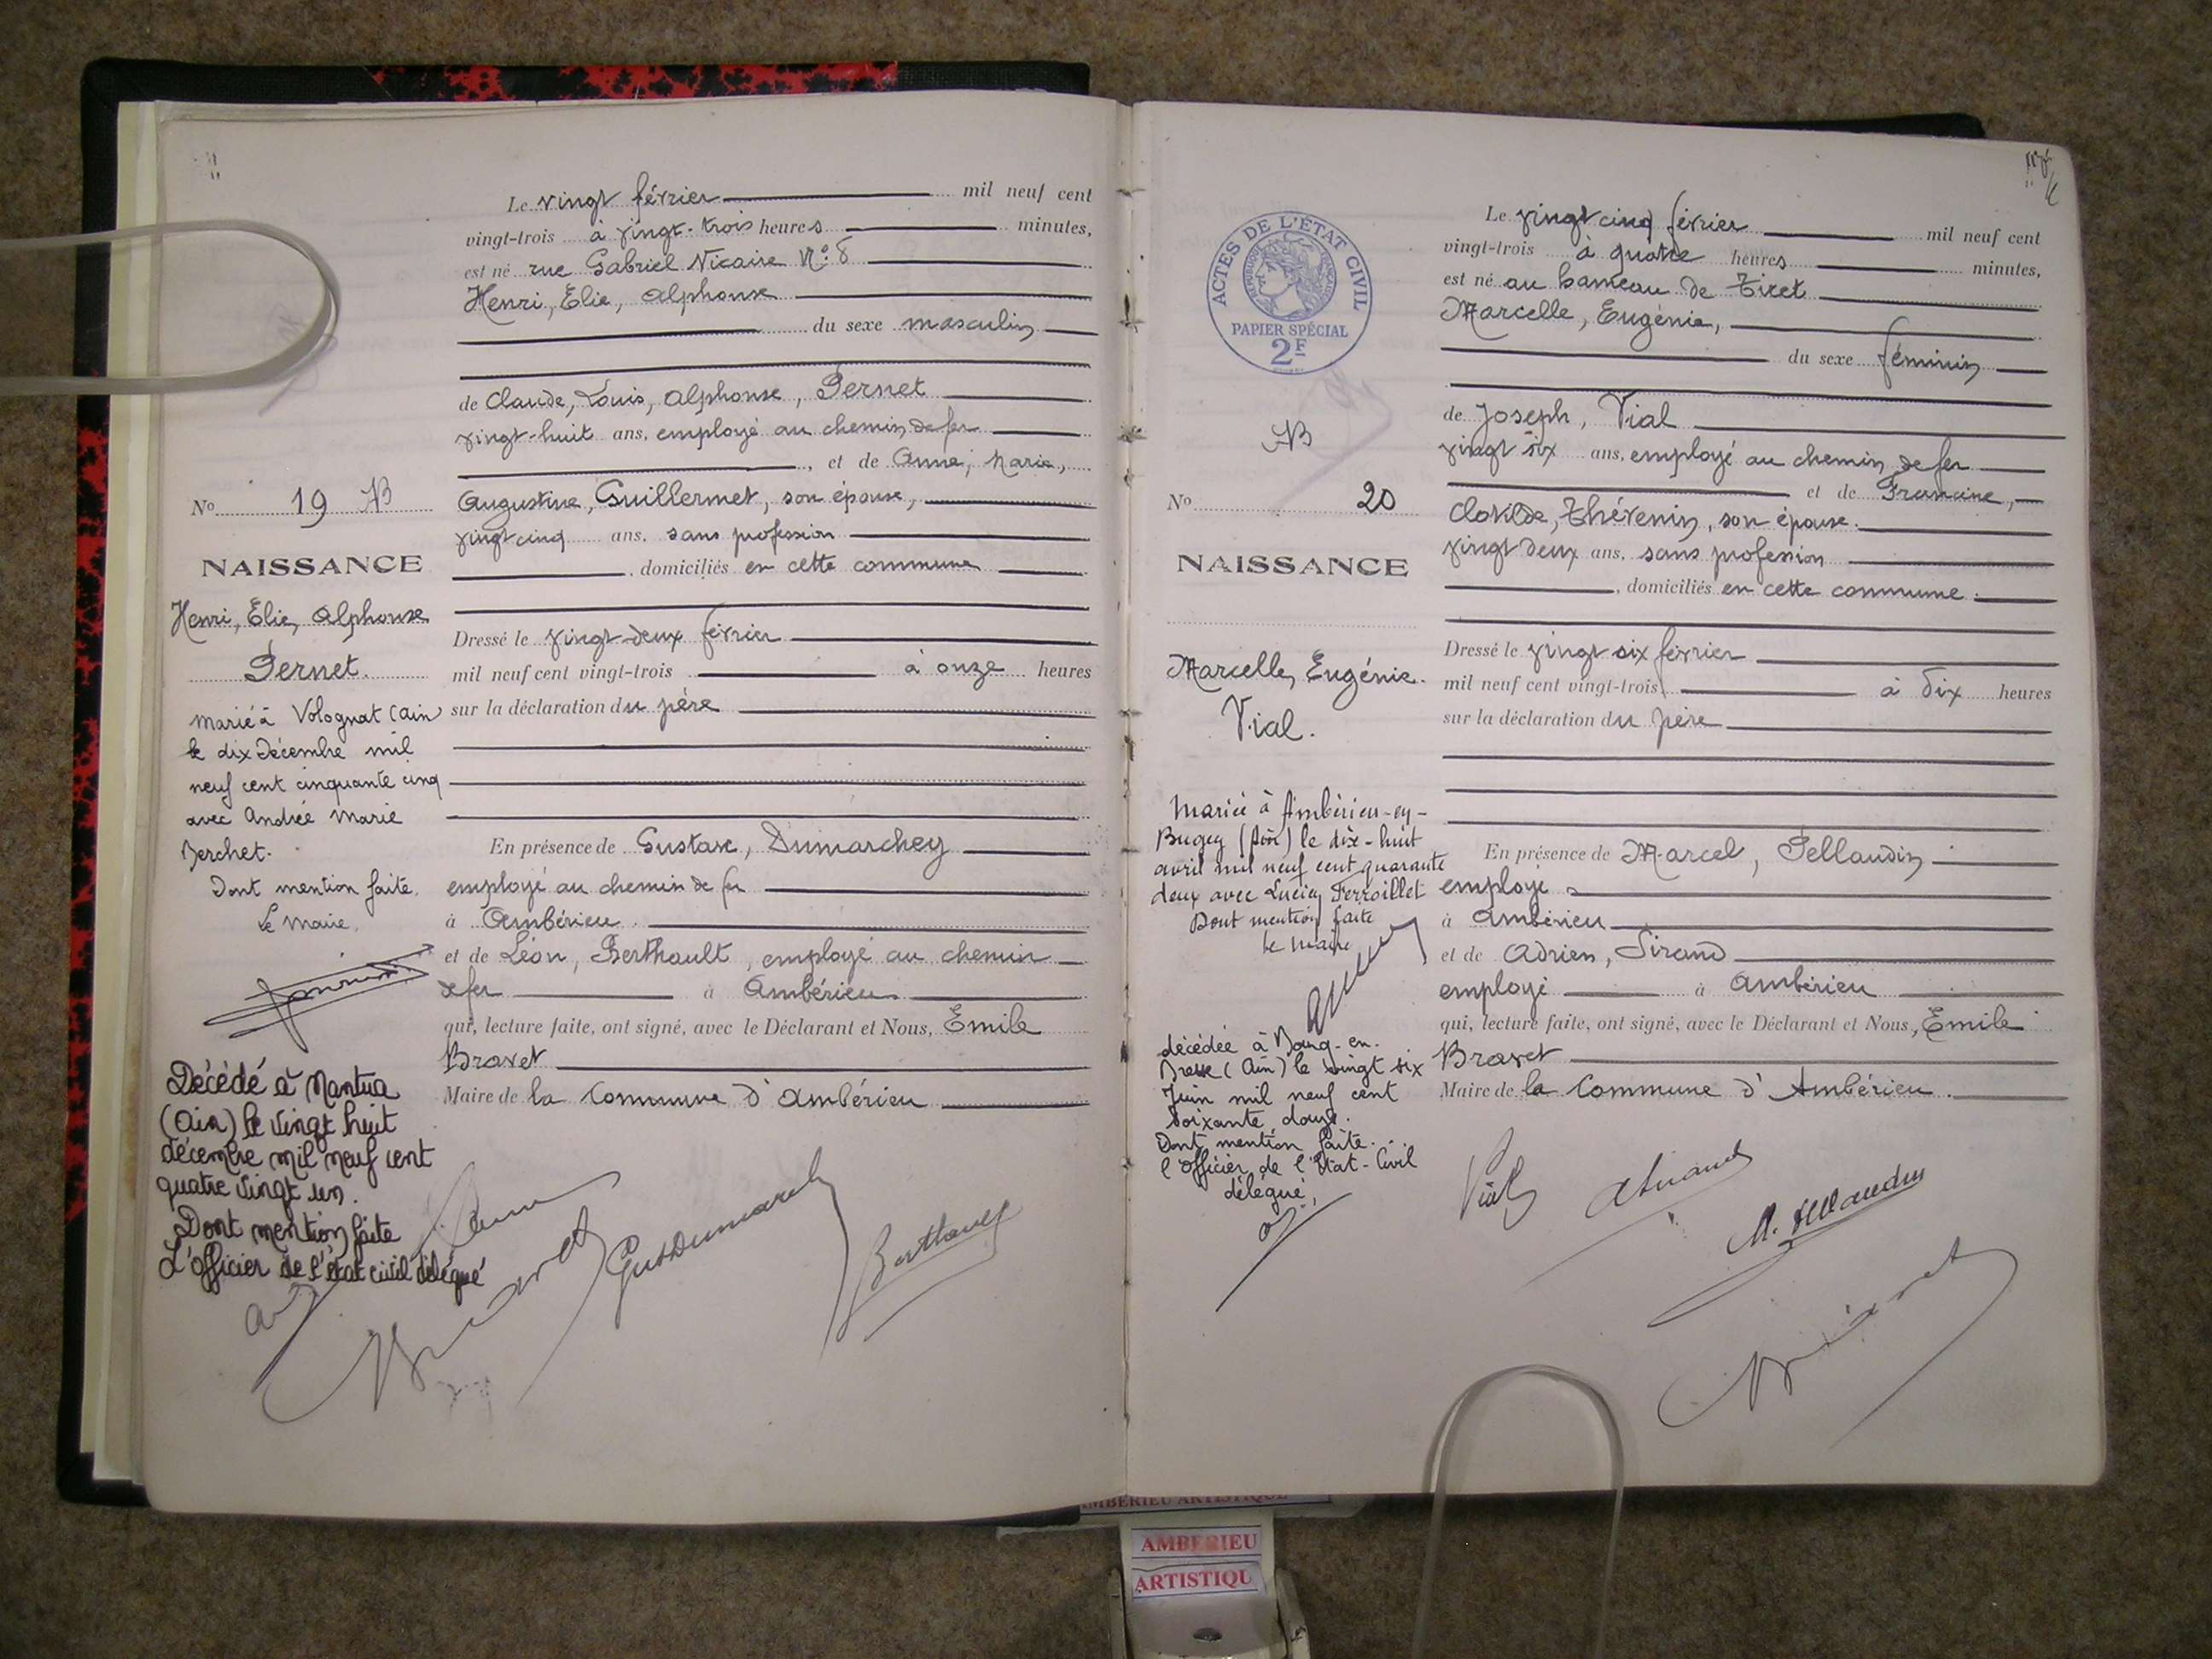 Le vingt février mil neuf cent
vingt-trois à vingt-trois heures minutes,
est né rue Gabriel Vicaire N° 8
Henri, Élie, Alphonse
du sexe masculin
de Claude, Louis, Alphonse, Pernet
vingt-huit ans, employé au chemin de fer
, et de Anne, Marie,
Augustine, Guillermet, son épouse,
vingt cinq ans, sans profession
, domiciliés en cette commune
Dressé le vingt-deux février
mil neuf cent vingt-trois à onze heures
sur la déclaration du père
En présence de Gustave, Dumarchey
employé au chemin de fer
à Ambérieu
et de Léon, Berthault, employé au chemin
de fer à Ambérieu
qui, lecture faite, ont signé, avec le Déclarant et Nous, Émile
Bravet
Maire de la Commune d'Ambérieu
No 19
NAISSANCE
Henri, Élie, Alphonse
Pernet.
marié à Volognat (Ain)
le dix décembre mil
neuf cent cinquante cinq
avec Andrée Marie
Berchet.
Dont mention faite.
Le Maire.
Décédé à Nantua
(Ain) le vingt huit
décembre mil neuf cent
quatre vingt un.
Dont mention faite
L'officier de l'état civil délégué
Gust Dumarchey
Berthault
ACTES DE L'ÉTAT CIVIL
RÉPUBLIQUE FRANÇAISE
PAPIER SPÉCIAL
2F
Le vingt cinq février mil neuf cent
vingt-trois à quatre heures minutes,
est né au hameau de Tiret
Marcelle, Eugénie,
du sexe féminin
de Joseph, Vial
vingt six ans, employé au chemin de fer
et de Francine,
Clotilde, Thévenin, son épouse.
vingt deux ans, sans profession
, domiciliés en cette commune.
Dressé le vingt six février
mil neuf cent vingt-trois à dix heures
sur la déclaration du père
En présence de Marcel, Pellaudin
employé
à Ambérieu
et de Adrien, Sirand
employé à Ambérieu
qui, lecture faite, ont signé, avec le Déclarant et Nous, Émile
Bravet
Maire de la Commune d'Ambérieu.
No 20
NAISSANCE
Marcelle, Eugénie.
Vial.
Mariée à Ambérieu-en-
Bugey (Ain) le dix-huit
avril mil neuf cent quarante
deux avec Lucien Ferroillet
Dont mention faite
le maire
décédée à Bourg-en-
Bresse (Ain) le vingt six
Juin mil neuf cent
soixante douze.
Dont mention faite.
l'officier de l'Etat-Civil
délégué,
Vial
M. Pellaudin
AMBERIEU ARTISTIQUE
AMBERIEU
ARTISTIQU